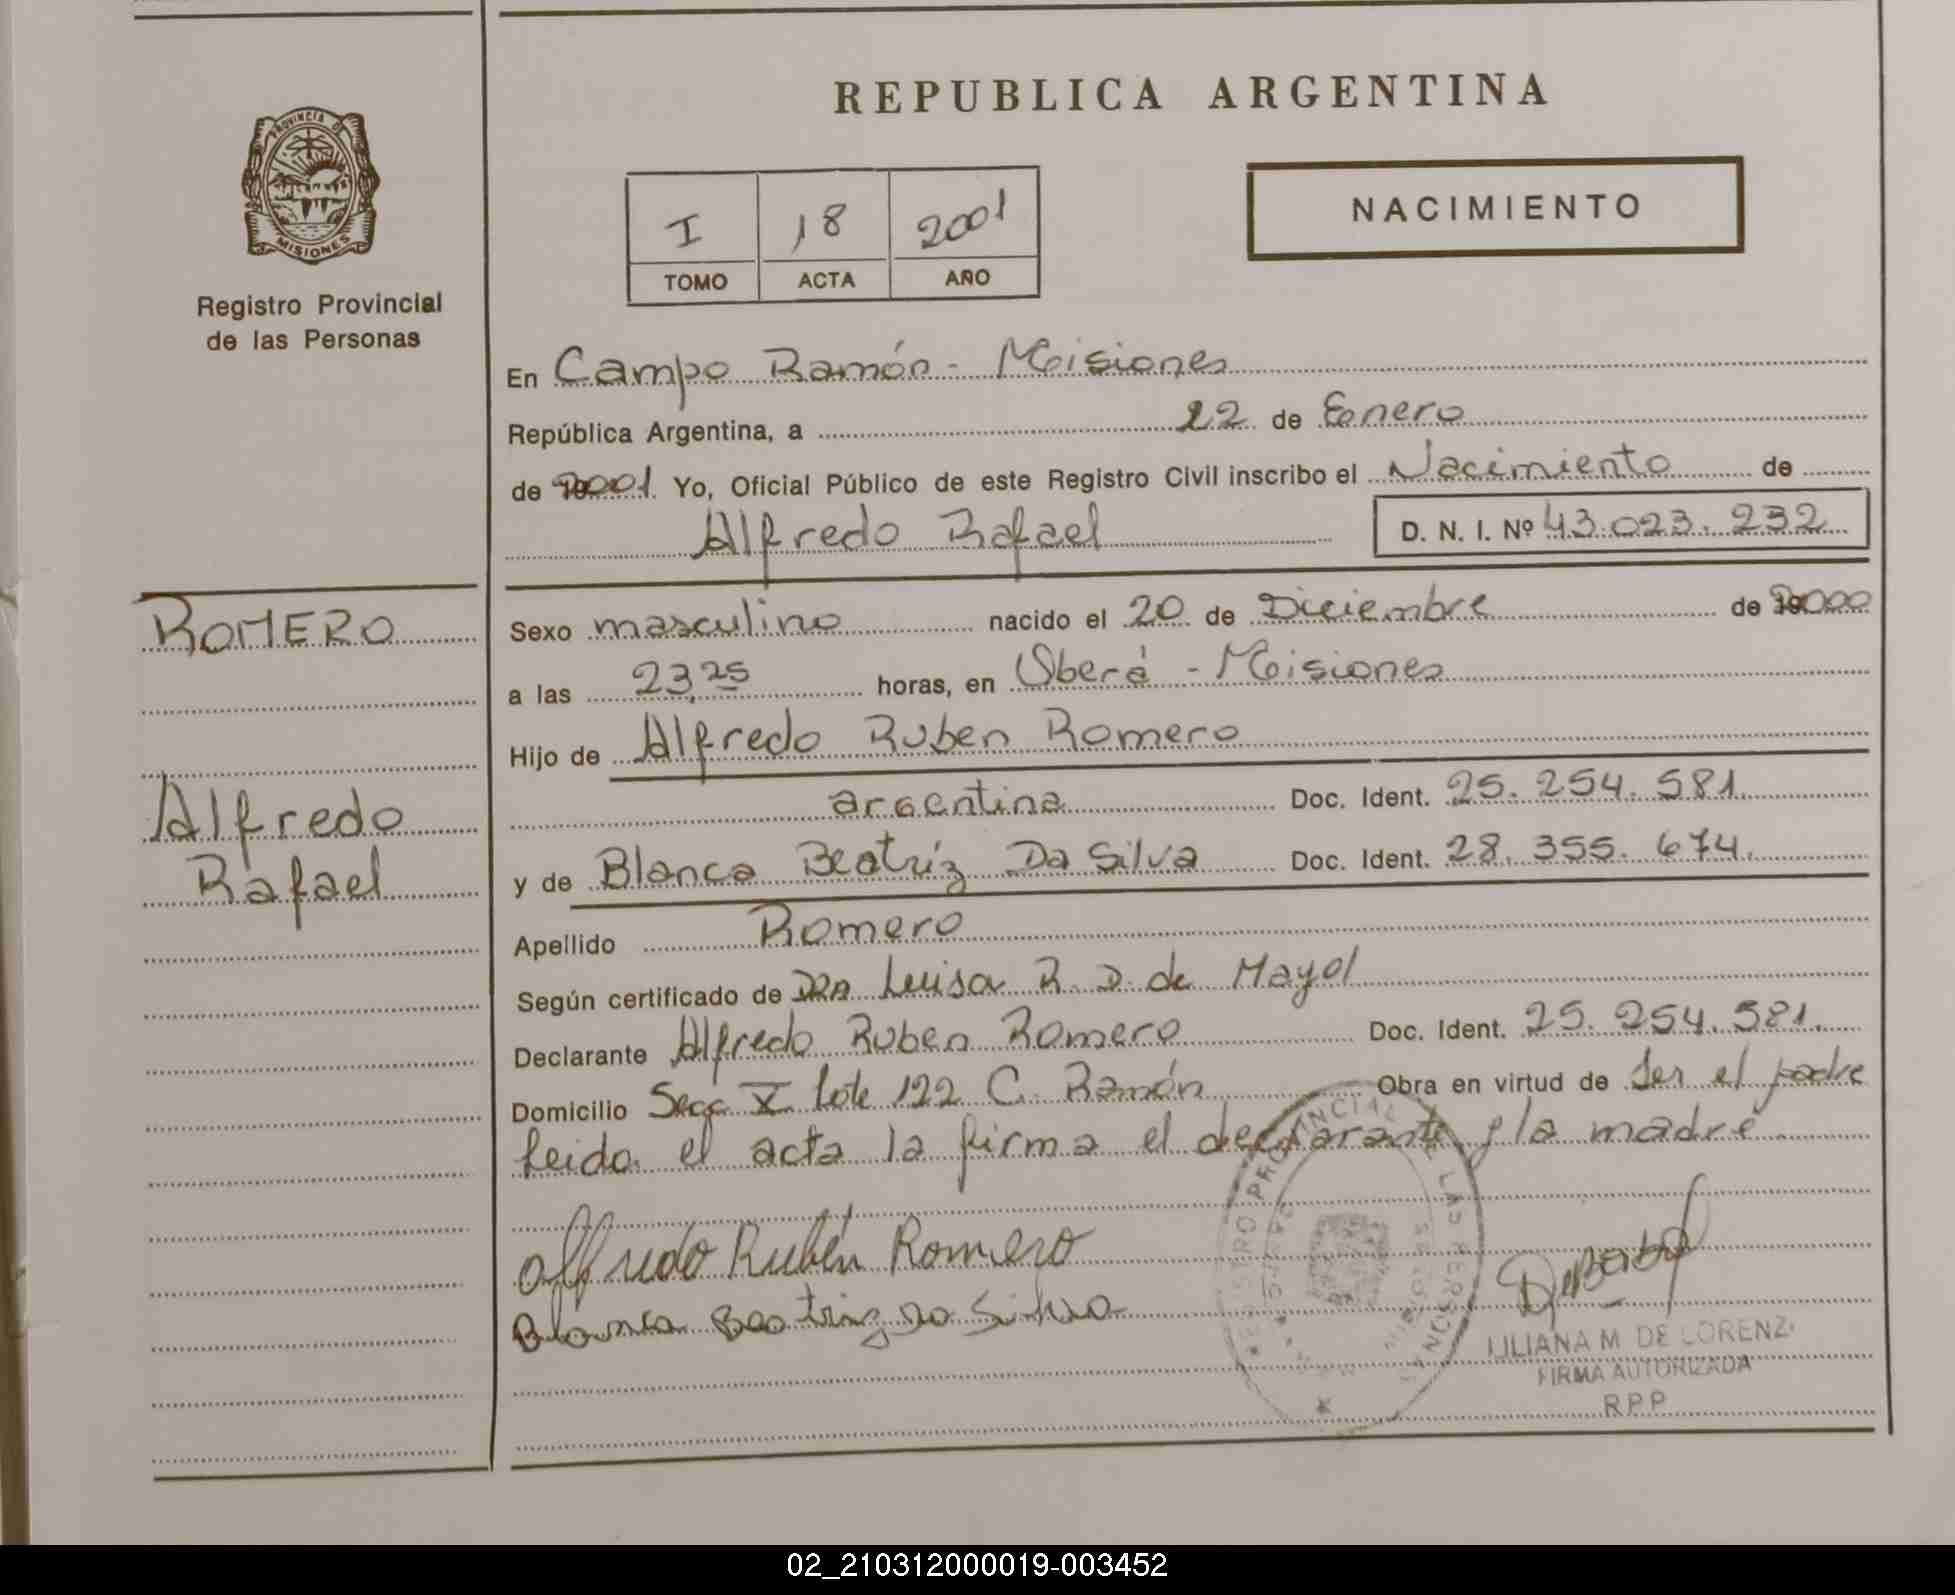 REPUBLICA ARGENTINA
PROVINCIA DE
MISIONES
Registro Provincial
de las Personas
I 18 2001
TOMO ACTA AÑO
NACIMIENTO
En Campo Ramón - Misiones
República Argentina, a 22 de Enero
de 2001 Yo, Oficial Público de este Registro Civil inscribo el Nacimiento de
Alfredo Rafael D. N. I. Nº 43.023.232
ROMERO
Alfredo
Rafael
Sexo masculino nacido el 20 de Diciembre de 2000
a las 23,25 horas, en Oberá - Misiones
Hijo de Alfredo Ruben Romero
argentina Doc. Ident. 25.254.581.
y de Blanca Beatríz Da Silva Doc. Ident. 28.355.674.
Apellido Romero
Según certificado de DRA Luisa R. D. de Mayol
Declarante Alfredo Ruben Romero Doc. Ident. 25.254.581.
Domicilio Secc X lote 122 C. Ramón Obra en virtud de ser el padre
Leida el acta la firma el declarante y la madre
Alfredo Rubén Romero
Blanca Beatriz Da Silva
REGISTRO PROVINCIAL DE LAS PERSONAS
LILIANA M DE LORENZI
FIRMA AUTORIZADA
R.P.P
02_210312000019-003452